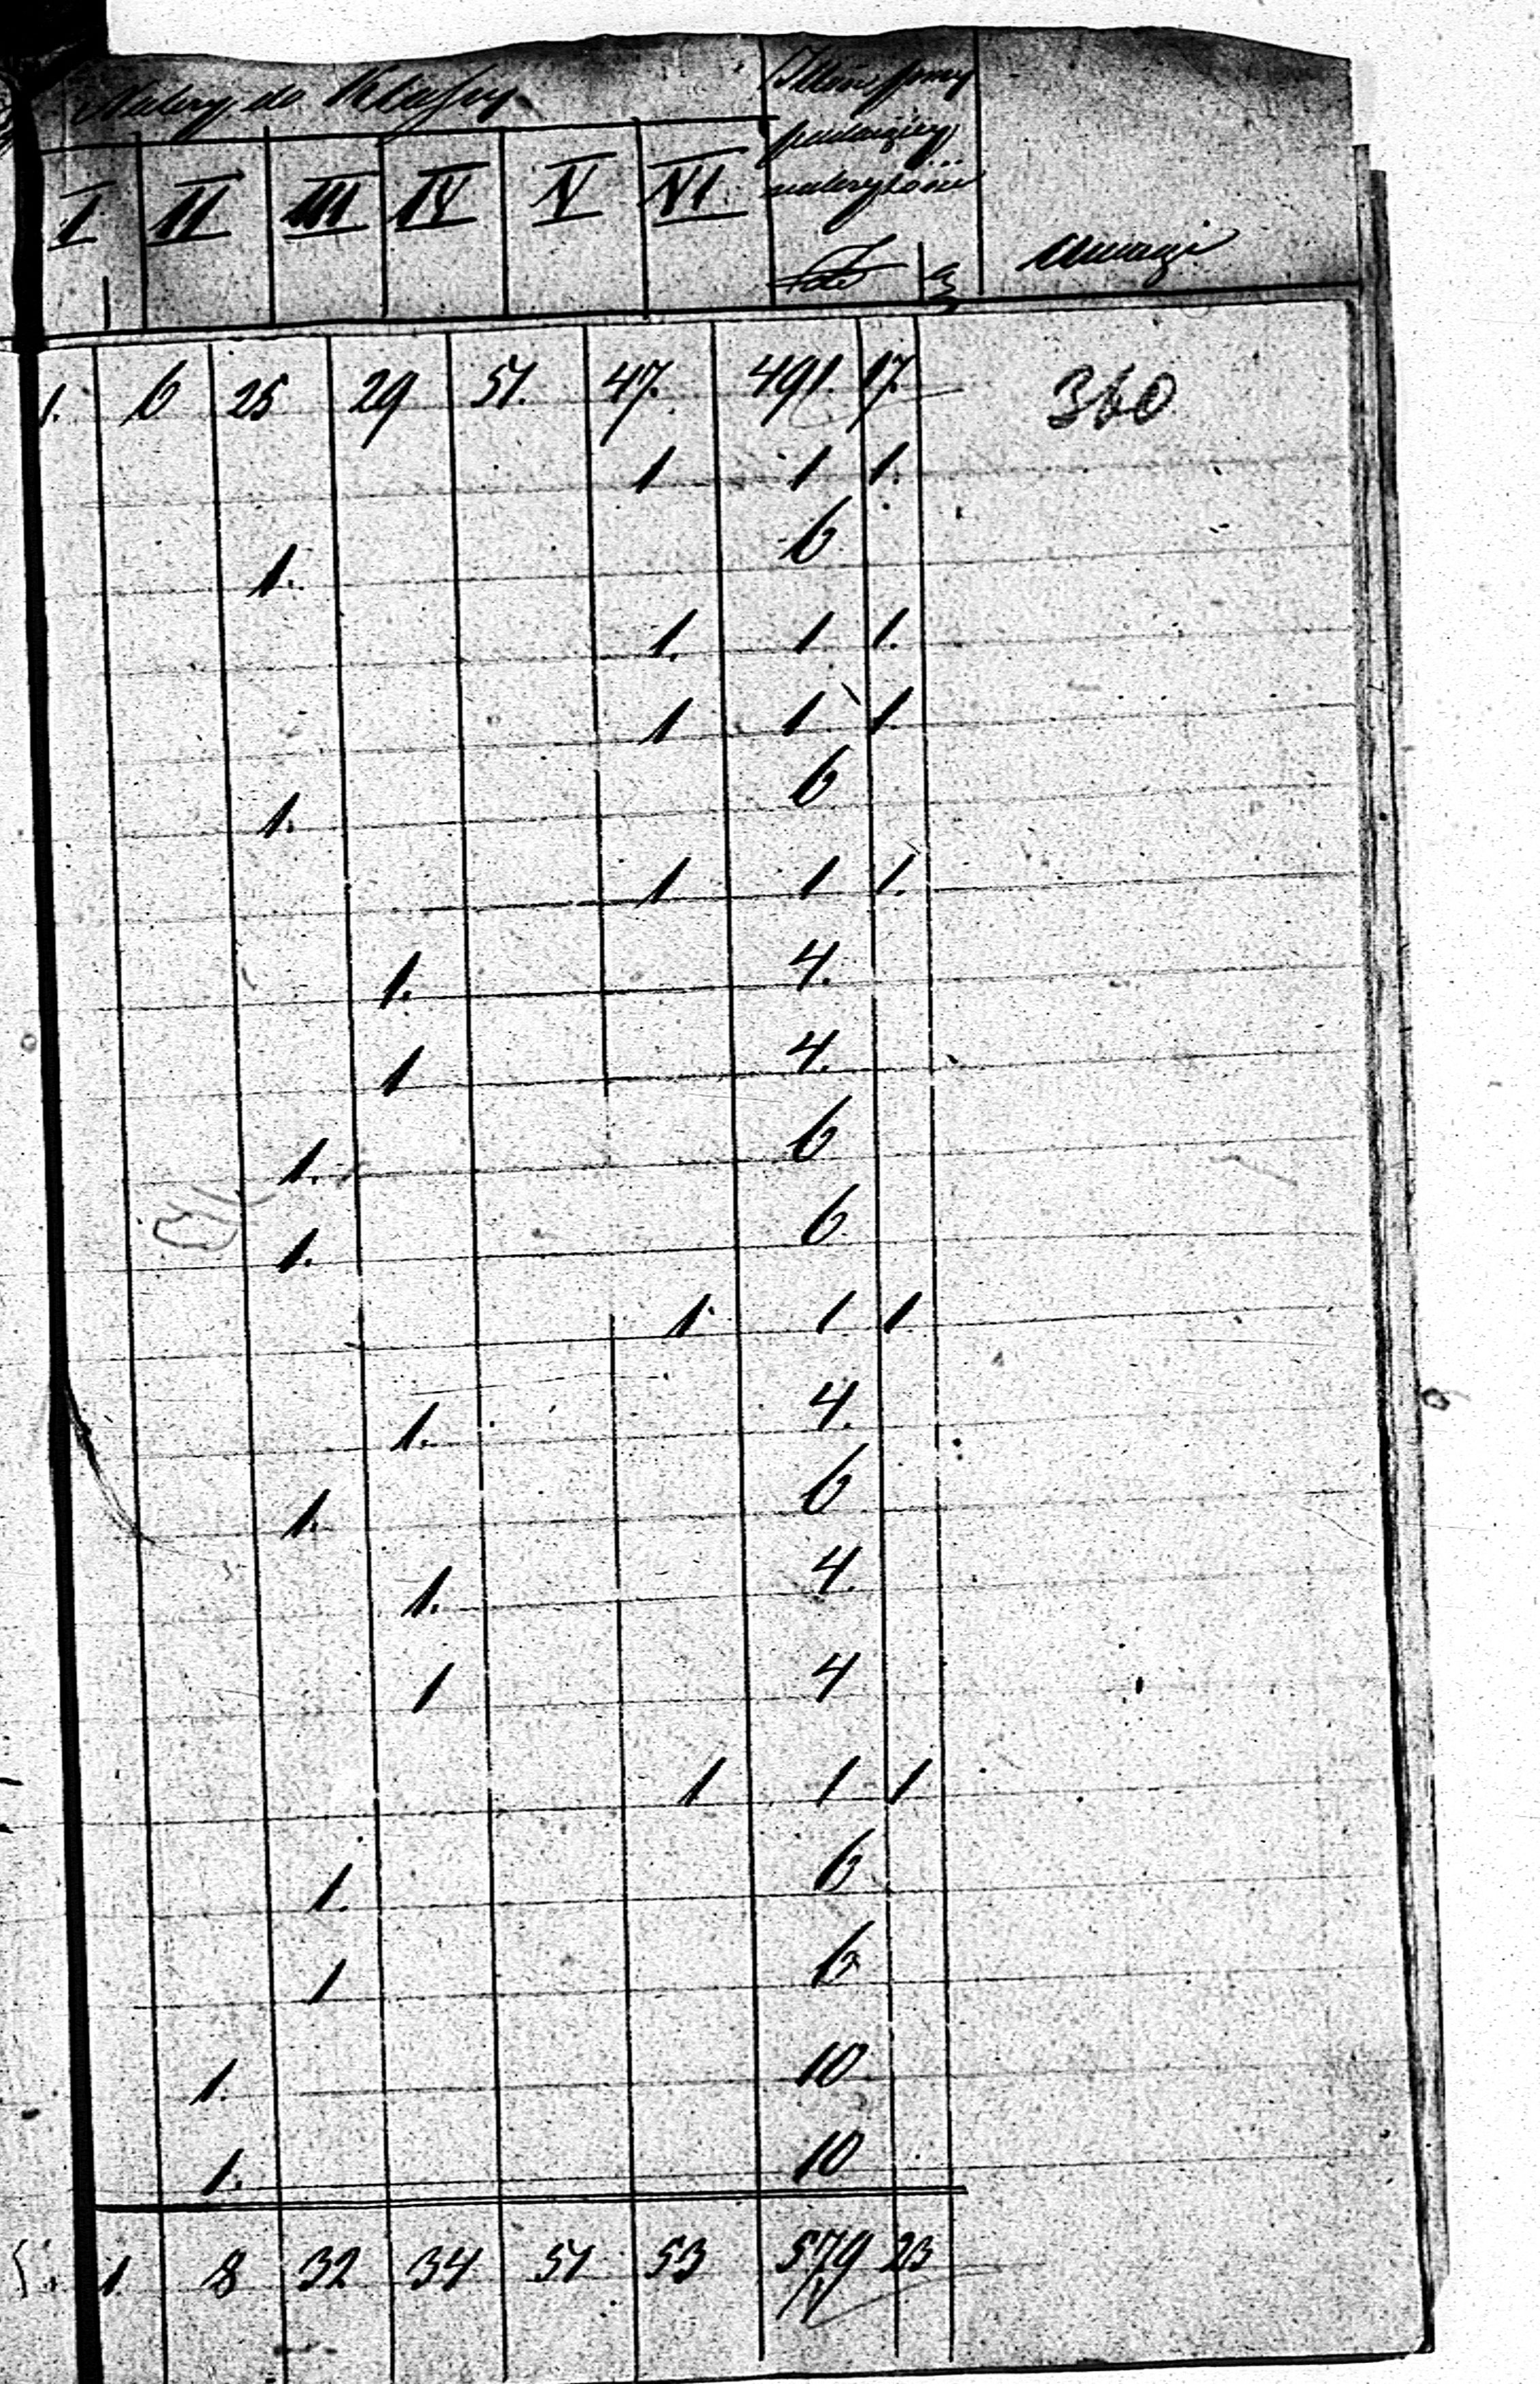 Należy do Klassy
I II III IV V VI
należytości
Uwagi
1. 6 25 29 51. 47. 491. 17. 360
1 1 1.
1. 6
1. 1 1.
1 1 1.
1. 6
1 1 1.
1. 4.
1 4.
1. 6
1. 6.
1. 1 1
1. 4.
1. 6
1. 4.
1 4
1 1 1
1. 6
1 6
1. 10
1. 10
1. 8 32 34 51 53 579 23